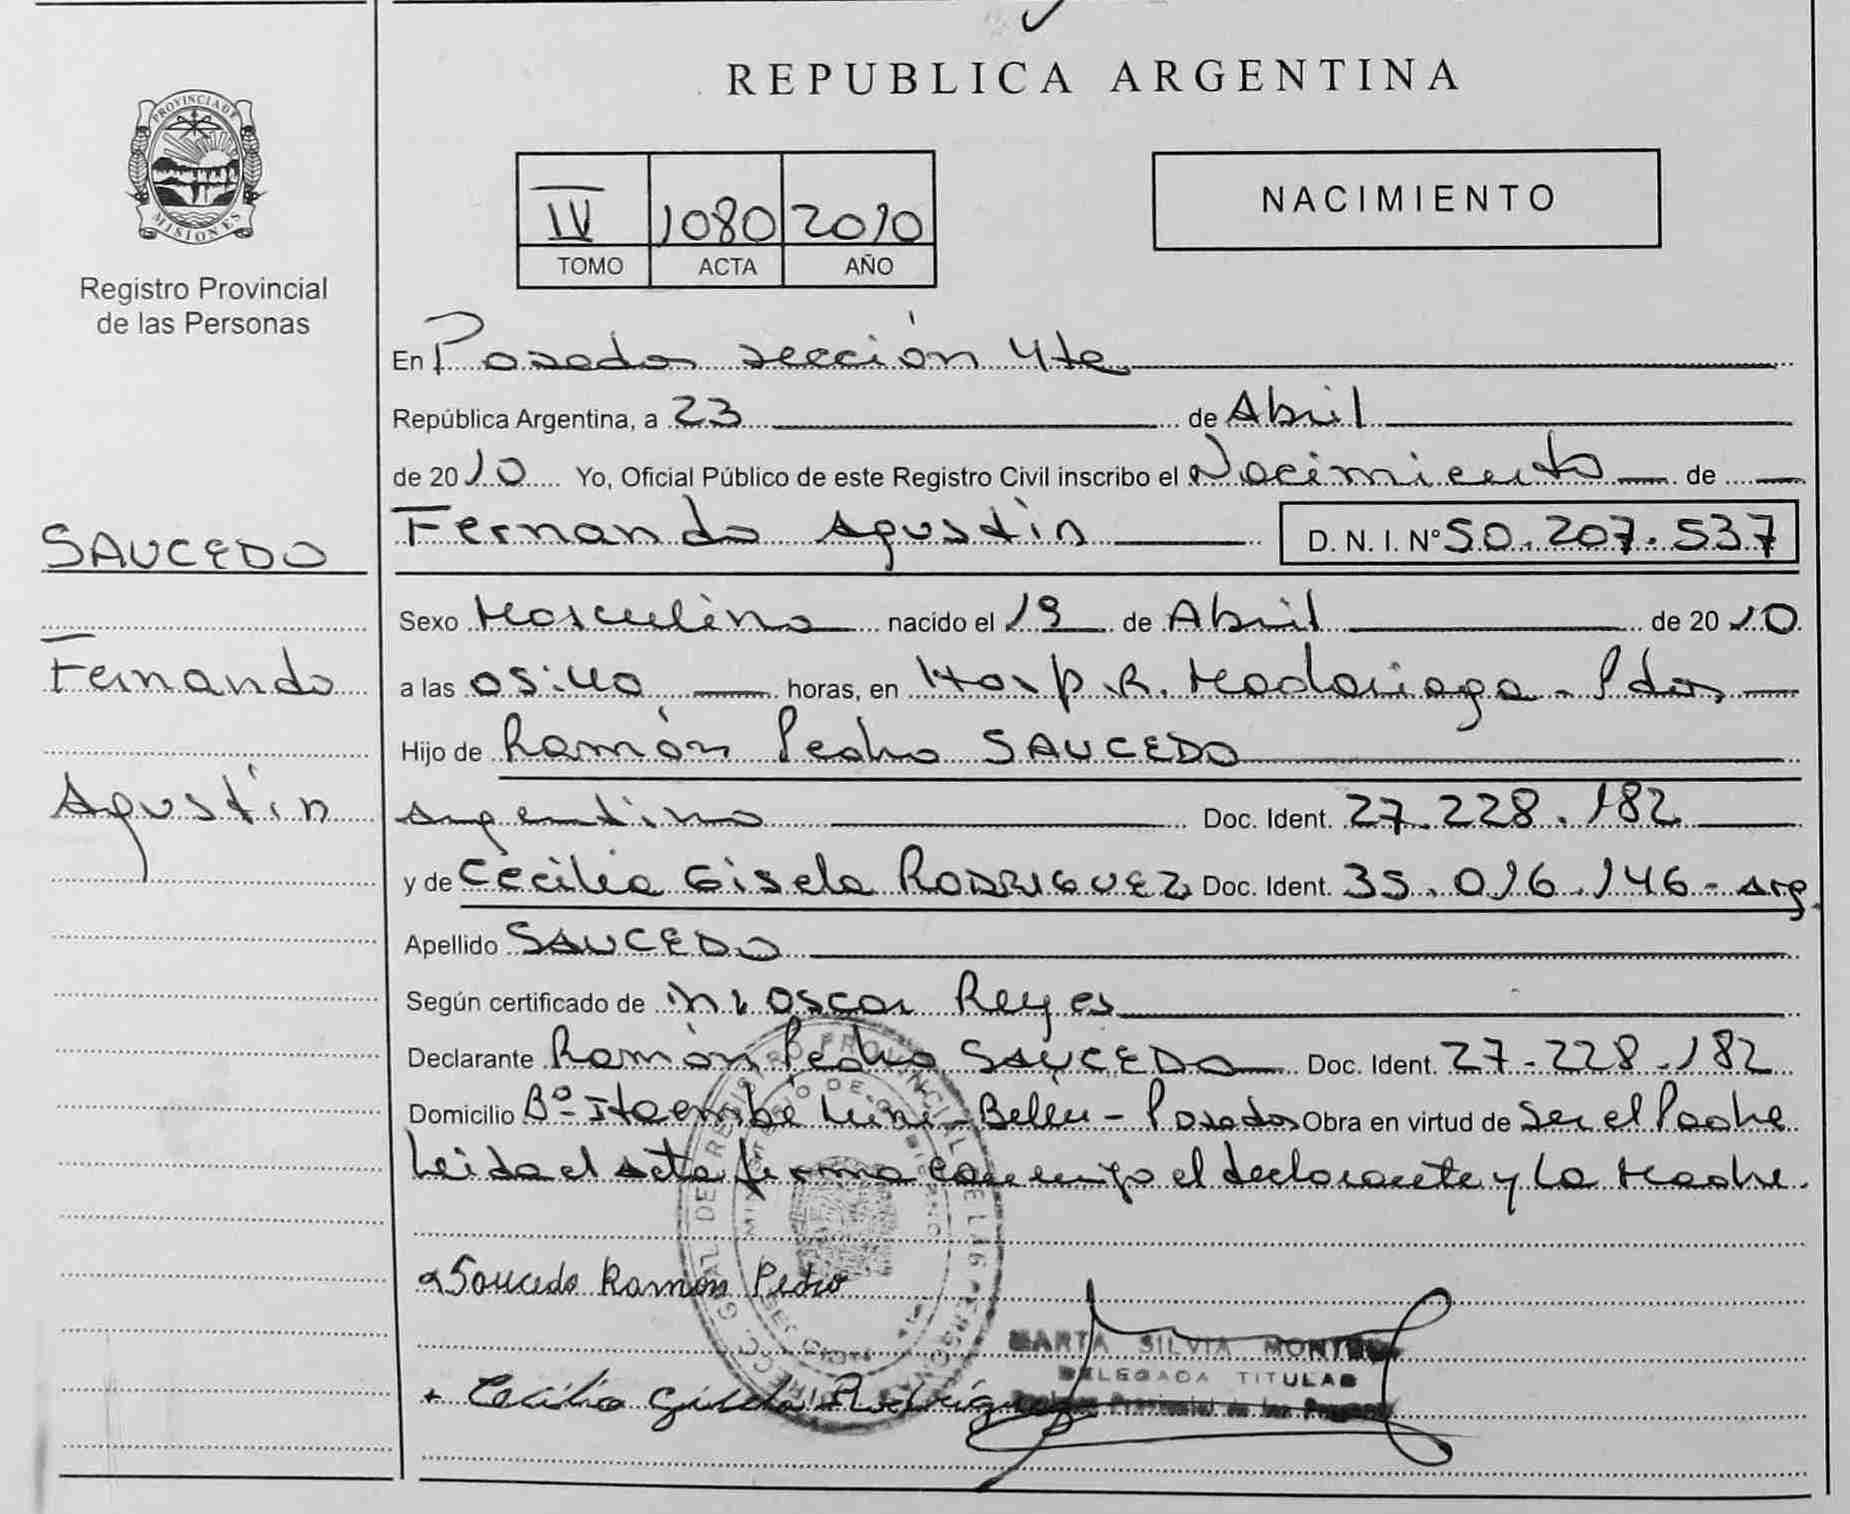 REPUBLICA ARGENTINA
PROVINCIA DE MISIONES
Registro Provincial
de las Personas
IV 1080 2010
TOMO ACTA AÑO
NACIMIENTO
En Posadas sección 4ta
República Argentina, a 23 de Abril
de 2010 Yo, Oficial Público de este Registro Civil inscribo el Nacimiento de
SAUCEDO
Fernando Agustín D. N. I. Nº 50.207.537
Sexo Masculino nacido el 19 de Abril de 2010
Fernando
a las 05:40 horas, en Hosp. R. Madariaga - Pdas
Hijo de Ramón Pedro SAUCEDO
Agustín
argentino Doc. Ident. 27.228.182
y de Cecilia Gisela RODRIGUEZ Doc. Ident. 35.016.146 - Arg.
Apellido SAUCEDO
Según certificado de Oscar Reyes
Declarante Ramón Pedro SAUCEDO Doc. Ident. 27.228.182
Domicilio Bº Itaembe Mini - Belén - Posadas Obra en virtud de Ser el Padre
Leida el acta firma conmigo el declarante y la Madre.
Saucedo Ramon Pedro
MARTA SILVIA
DELEGADA TITULAR
Cecilia Rodrígu